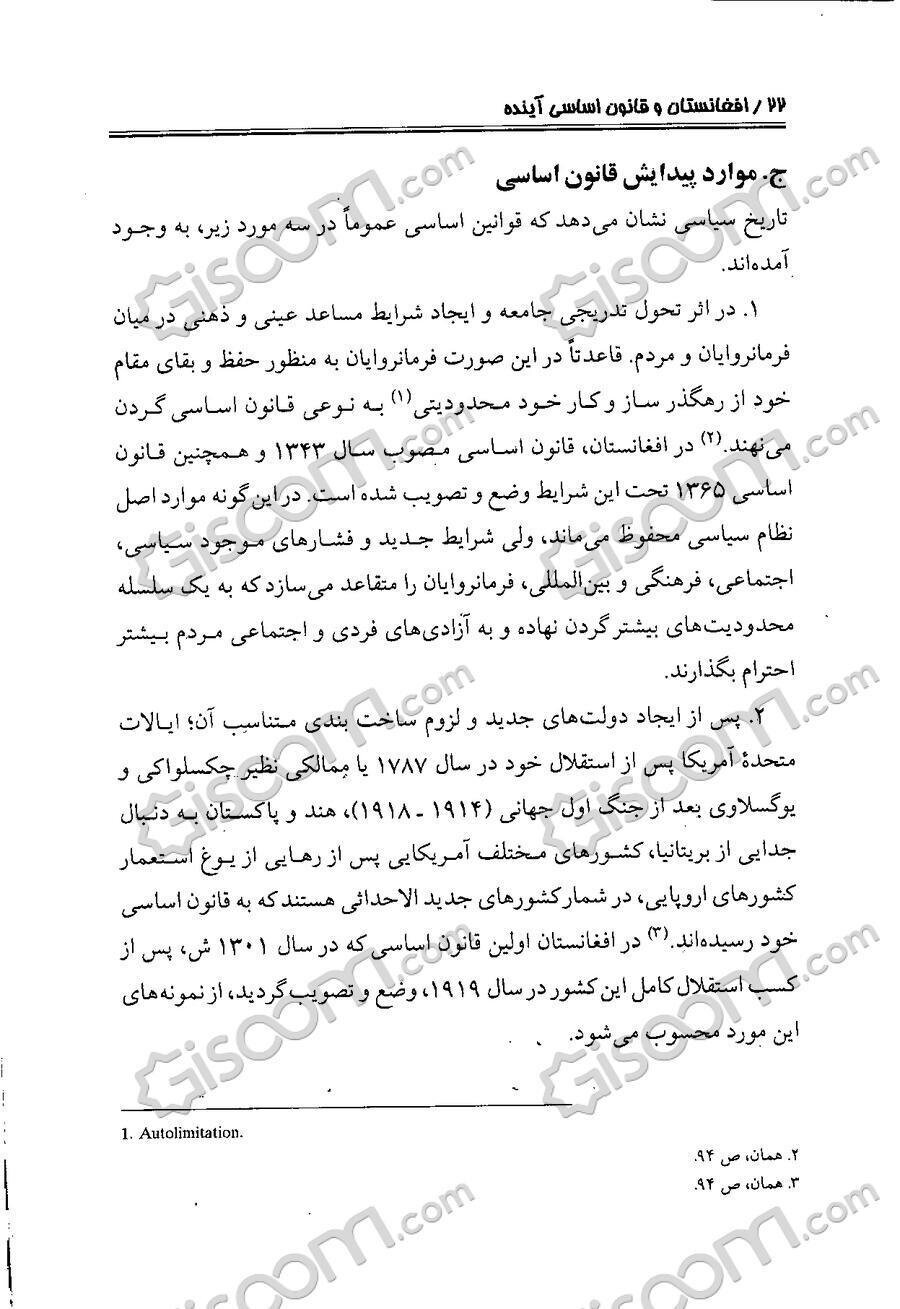 ۲۲ / افغانستان و قانون اساسی آینده
ج. موارد پیدایش قانون اساسی
تاریخ سیاسی نشان می‌دهد که قوانین اساسی عموماً در سه مورد زیر، به وجود
آمده‌اند.
۱. در اثر تحول تدریجی جامعه و ایجاد شرایط مساعد عینی و ذهنی در میان
فرمانروایان و مردم. قاعدتاً در این صورت فرمانروایان به منظور حفظ و بقای مقام
خود از رهگذر ساز و کار خود محدودیتی(۱) به نوعی قانون اساسی گردن
می‌نهند.(۲) در افغانستان، قانون اساسی مصوب سال ۱۳۴۳ و همچنین قانون
اساسی ۱۳۶۵ تحت این شرایط وضع و تصویب شده است. در این گونه موارد اصل
نظام سیاسی محفوظ می‌ماند، ولی شرایط جدید و فشارهای موجود سیاسی،
اجتماعی، فرهنگی و بین‌المللی، فرمانروایان را متقاعد می‌سازد که به یک سلسله
محدودیت‌های بیشتر گردن نهاده و به آزادی‌های فردی و اجتماعی مردم بیشتر
احترام بگذارند.
۲. پس از ایجاد دولت‌های جدید و لزوم ساخت بندی متناسب آن؛ ایالات
متحدهٔ آمریکا پس از استقلال خود در سال ۱۷۸۷ یا ممالکی نظیر چکسلواکی و
یوگسلاوی بعد از جنگ اول جهانی (۱۹۱۴ ـ ۱۹۱۸)، هند و پاکستان به دنبال
جدایی از بریتانیا، کشورهای مختلف آمریکایی پس از رهایی از یوغ استعمار
کشورهای اروپایی، در شمار کشورهای جدید الاحداثی هستند که به قانون اساسی
خود رسیده‌اند.(۳) در افغانستان اولین قانون اساسی که در سال ۱۳۰۱ ش، پس از
کسب استقلال کامل این کشور در سال ۱۹۱۹، وضع و تصویب گردید، از نمونه‌های
این مورد محسوب می‌شود.
1. Autolimitation.
۲. همان، ص ۹۴.
۳. همان، ص ۹۴.
Giscoom.com